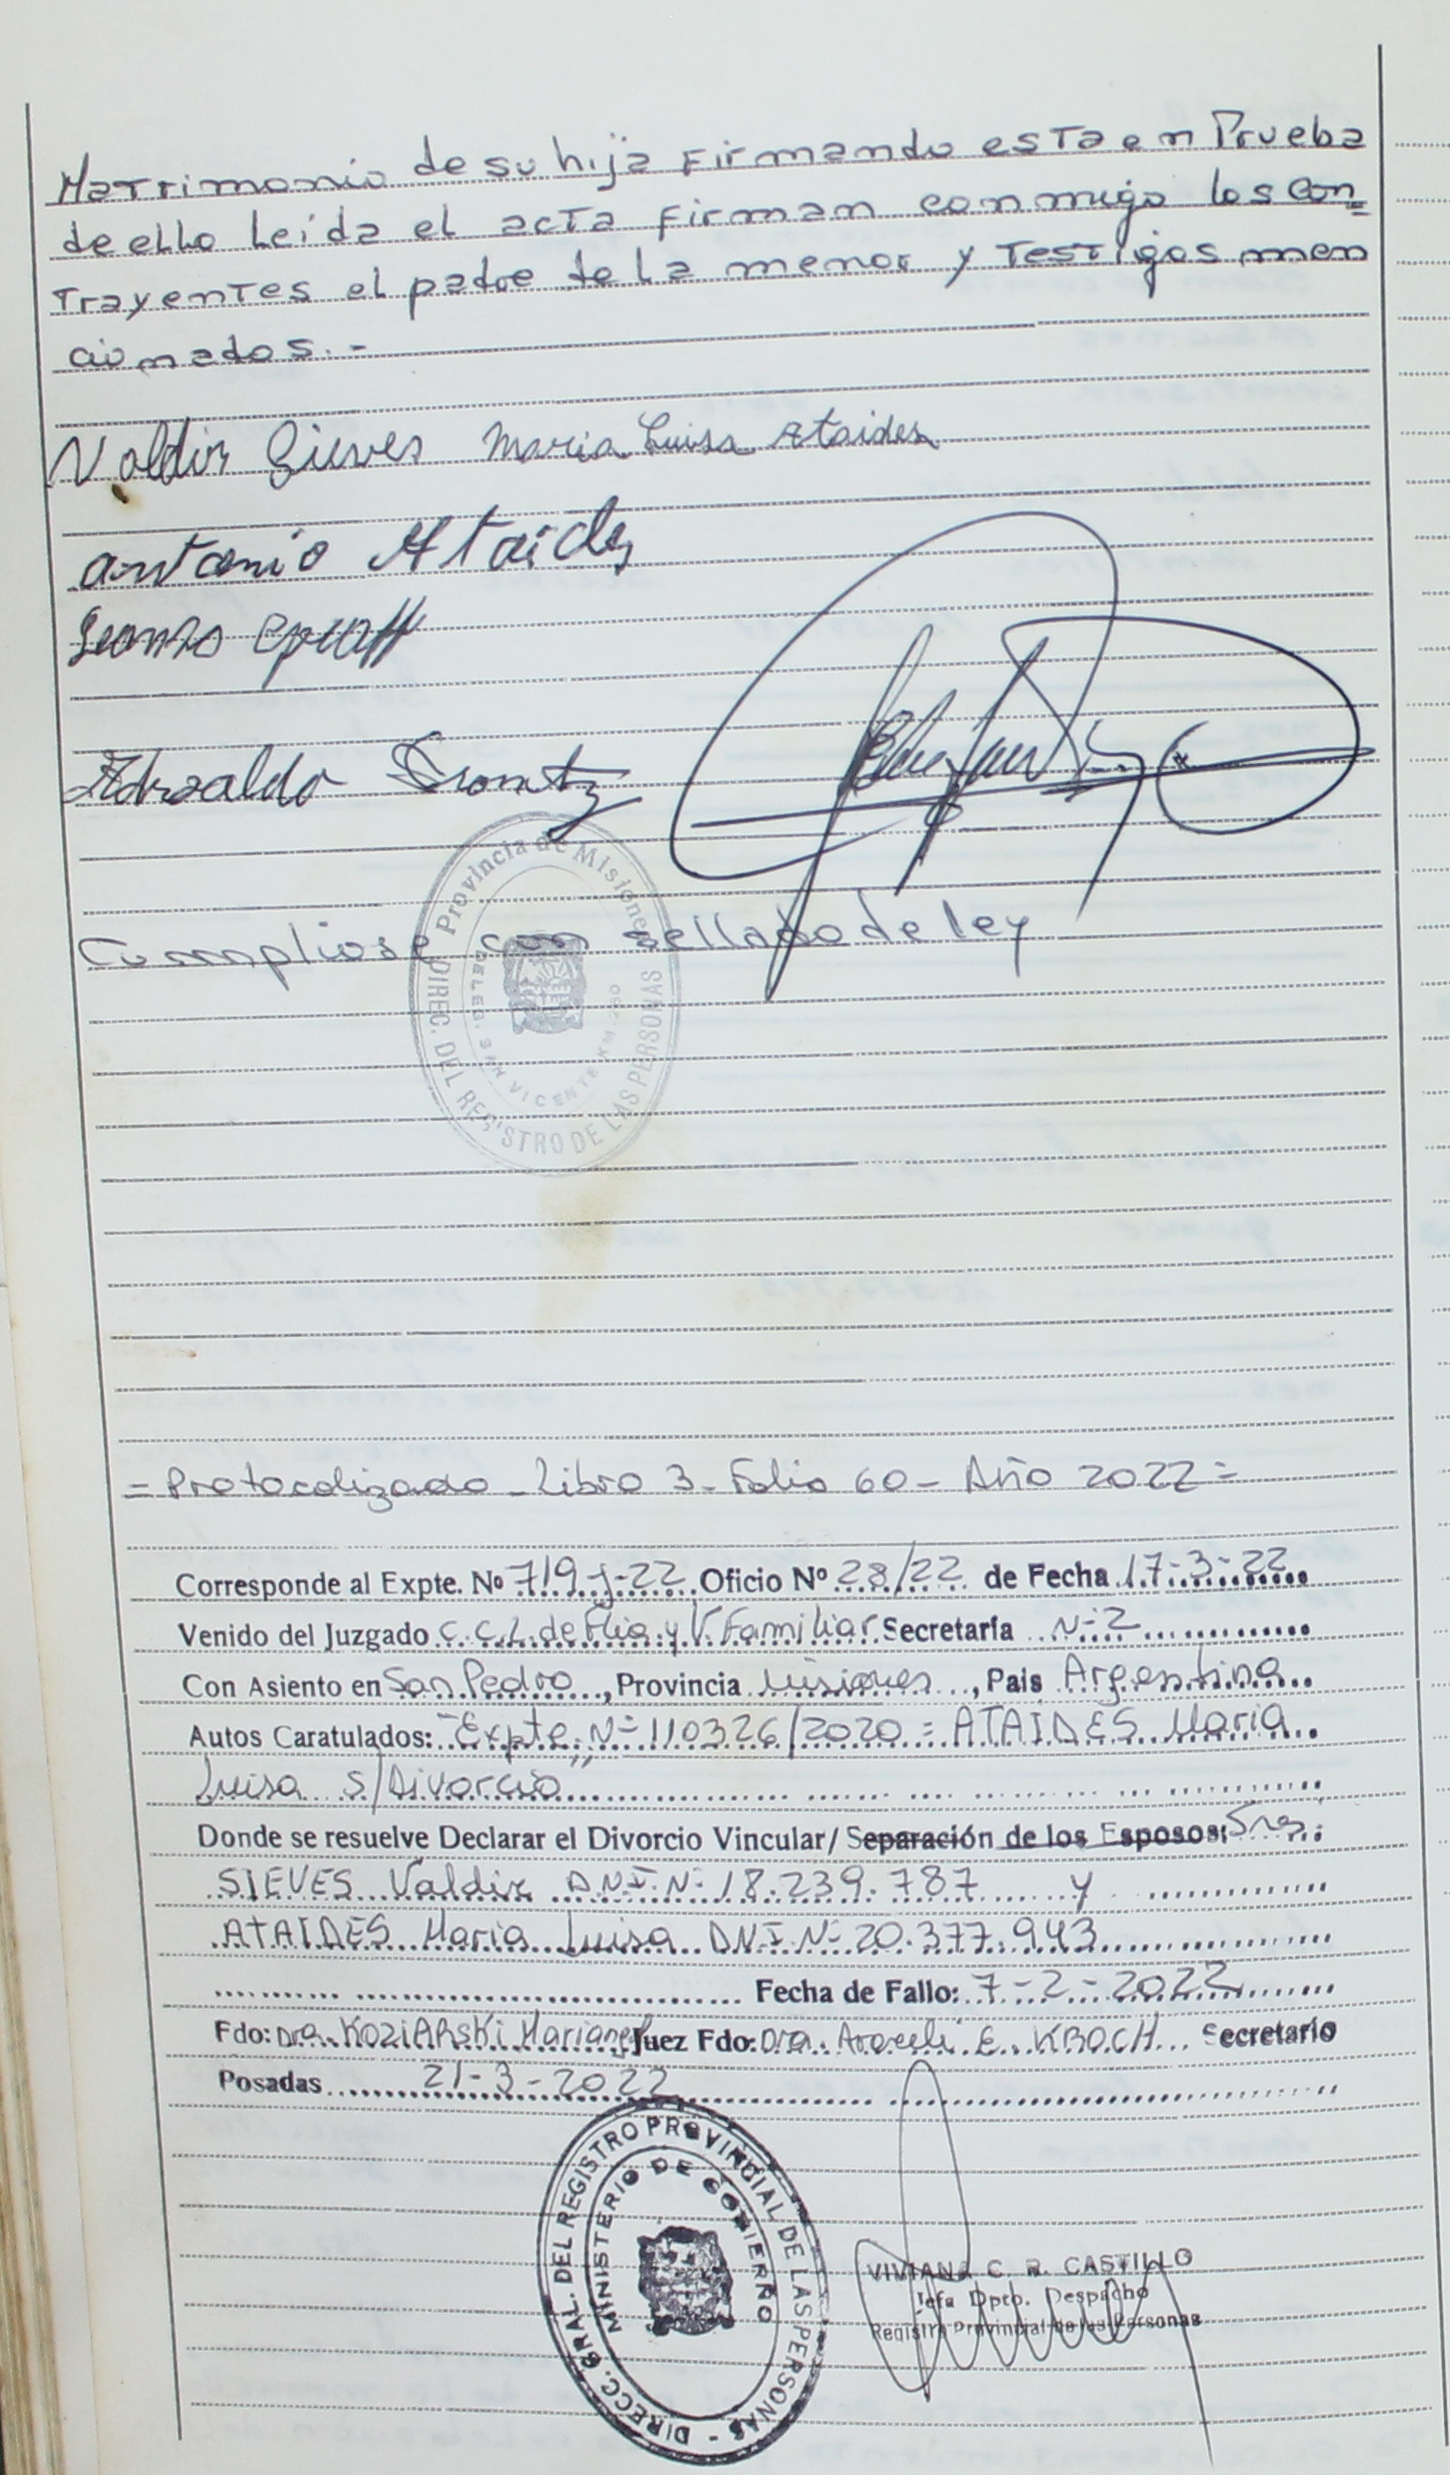 Matrimonio de su hija Firmando esta en Prueba
de ello Leída el acta Firman conmigo los con=
trayentes el padre de la menor y Testigos men
cionados.-
Valdir Sieves Maria Luisa Ataides
Antonio Ataides
Cumpliose con sellado de ley
Provincia de Misiones
DIREC. DEL REGISTRO DE LAS PERSONAS
DELEG. SAN VICENTE KM.
= Protocolizado - Libro 3 - Folio 60 - Año 2022 =
Corresponde al Expte. Nº 719-J-22 Oficio Nº 28/22 de Fecha 17-3-22
Venido del Juzgado C.C.L. de Flia y V. Familiar Secretaría Nº 2
Con Asiento en San Pedro, Provincia Misiones, País Argentina
Autos Caratulados: "Expte. Nº 110326/2020 = ATAIDES Maria
Luisa s/Divorcio"
Donde se resuelve Declarar el Divorcio Vincular/ Separación de los Esposos: Sres.
SIEVES Valdir D.N.I. Nº 18.239.787 y
ATAIDES Maria Luisa D.N.I. Nº 20.377.943
Fecha de Fallo: 7-2-2022
Fdo: Dra. KOZIARSKI Mariangel Juez Fdo: Dra. Araceli E. KROCH Secretario
Posadas 21-3-2022
DIRECC. GRAL. DEL REGISTRO PROVINCIAL DE LAS PERSONAS -
MINISTERIO DE GOBIERNO
VIVIANA C. R. CASTILLO
Jefa Dpto. Despacho
Registro Provincial de las Personas